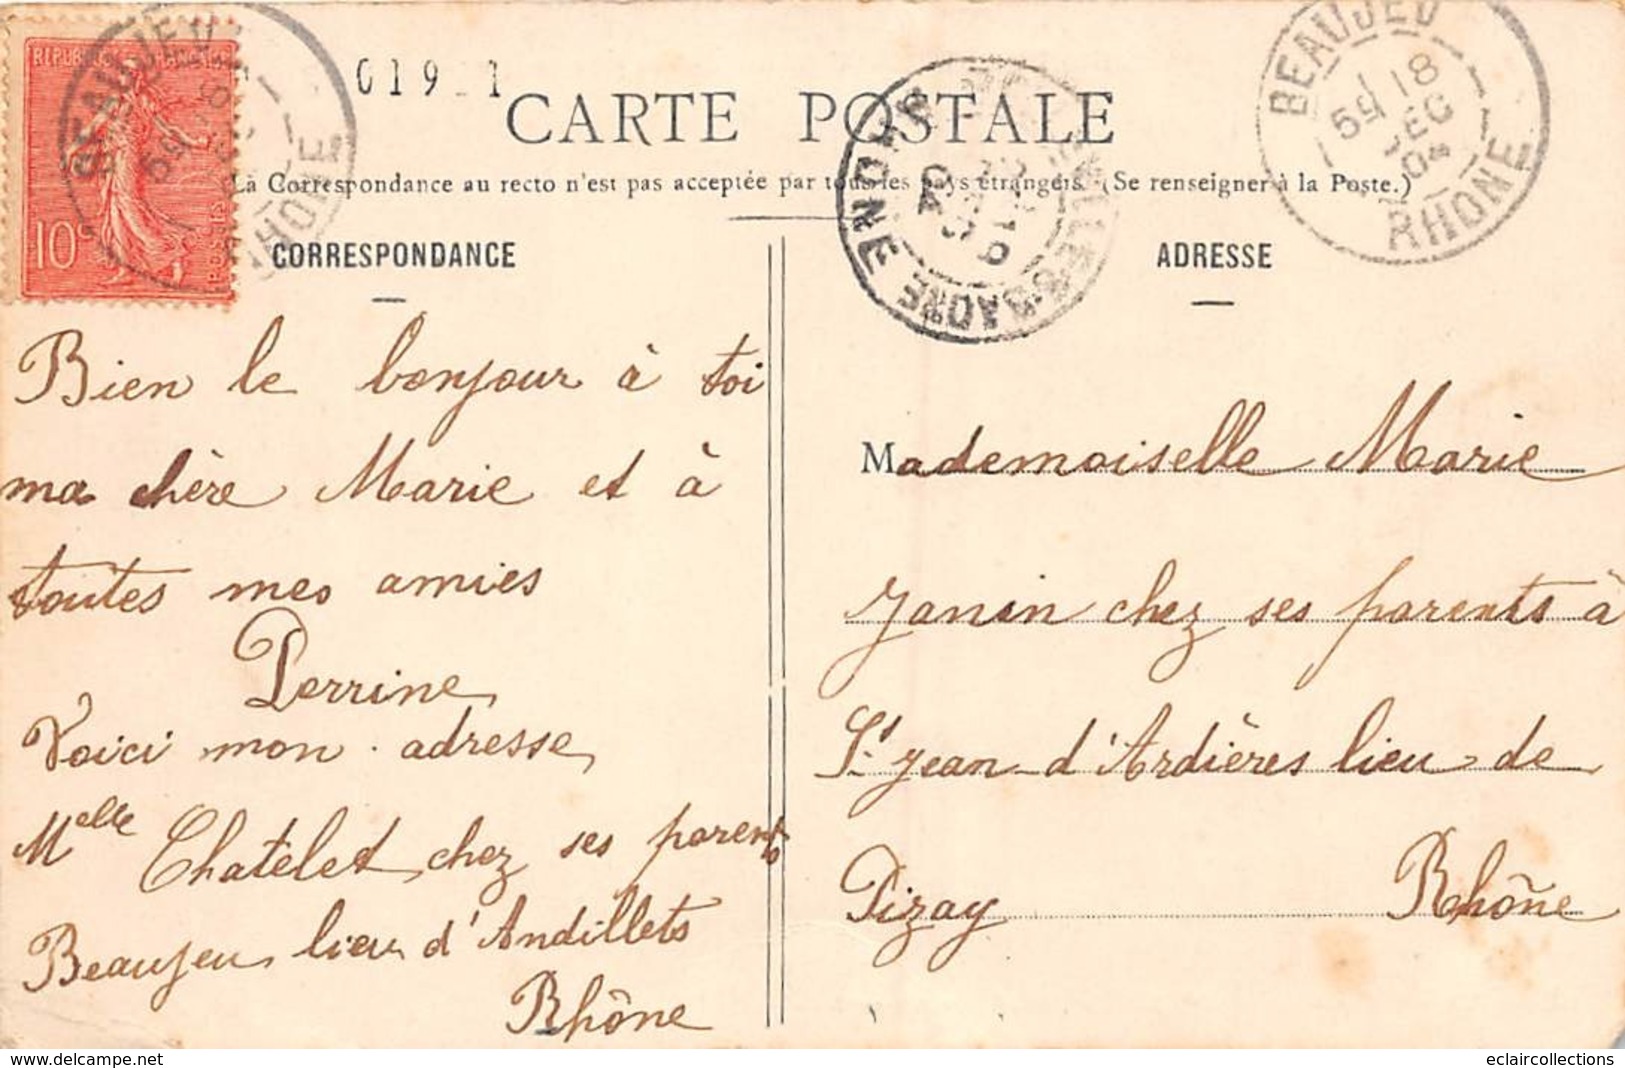 REPUBLIQUE FRANÇAISE
10c
POSTES
BEAUJEU
RHONE
019 1
CARTE POSTALE
BEAUJEU
18
5E
DEC
04
RHONE
La Correspondance au recto n'est pas acceptée par tous les pays étrangers. (Se renseigner à la Poste.)
CORRESPONDANCE
Bien le bonjour à toi
ma chère Marie et à
toutes mes amies
Perrine
Voici mon adresse
Melle Chatelet chez ses parents
Beaujeu lieu d'Andillets
Rhône
ADRESSE
Mademoiselle Marie
Janin chez ses parents à
St Jean d'Ardières lieu de
Pizay Rhône
eclaircollections